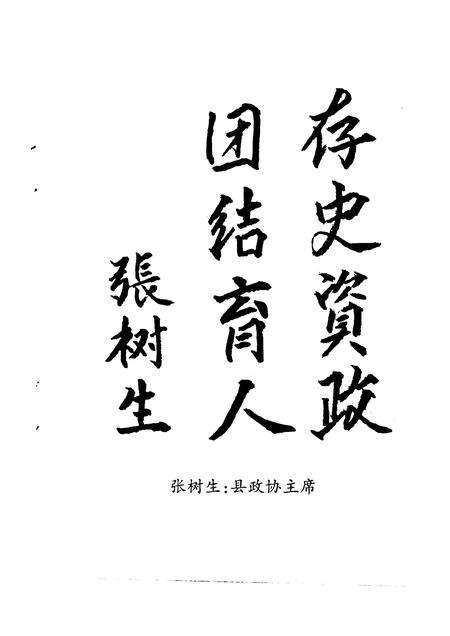 存史資政
团结育人
張树生
张树生：县政协主席